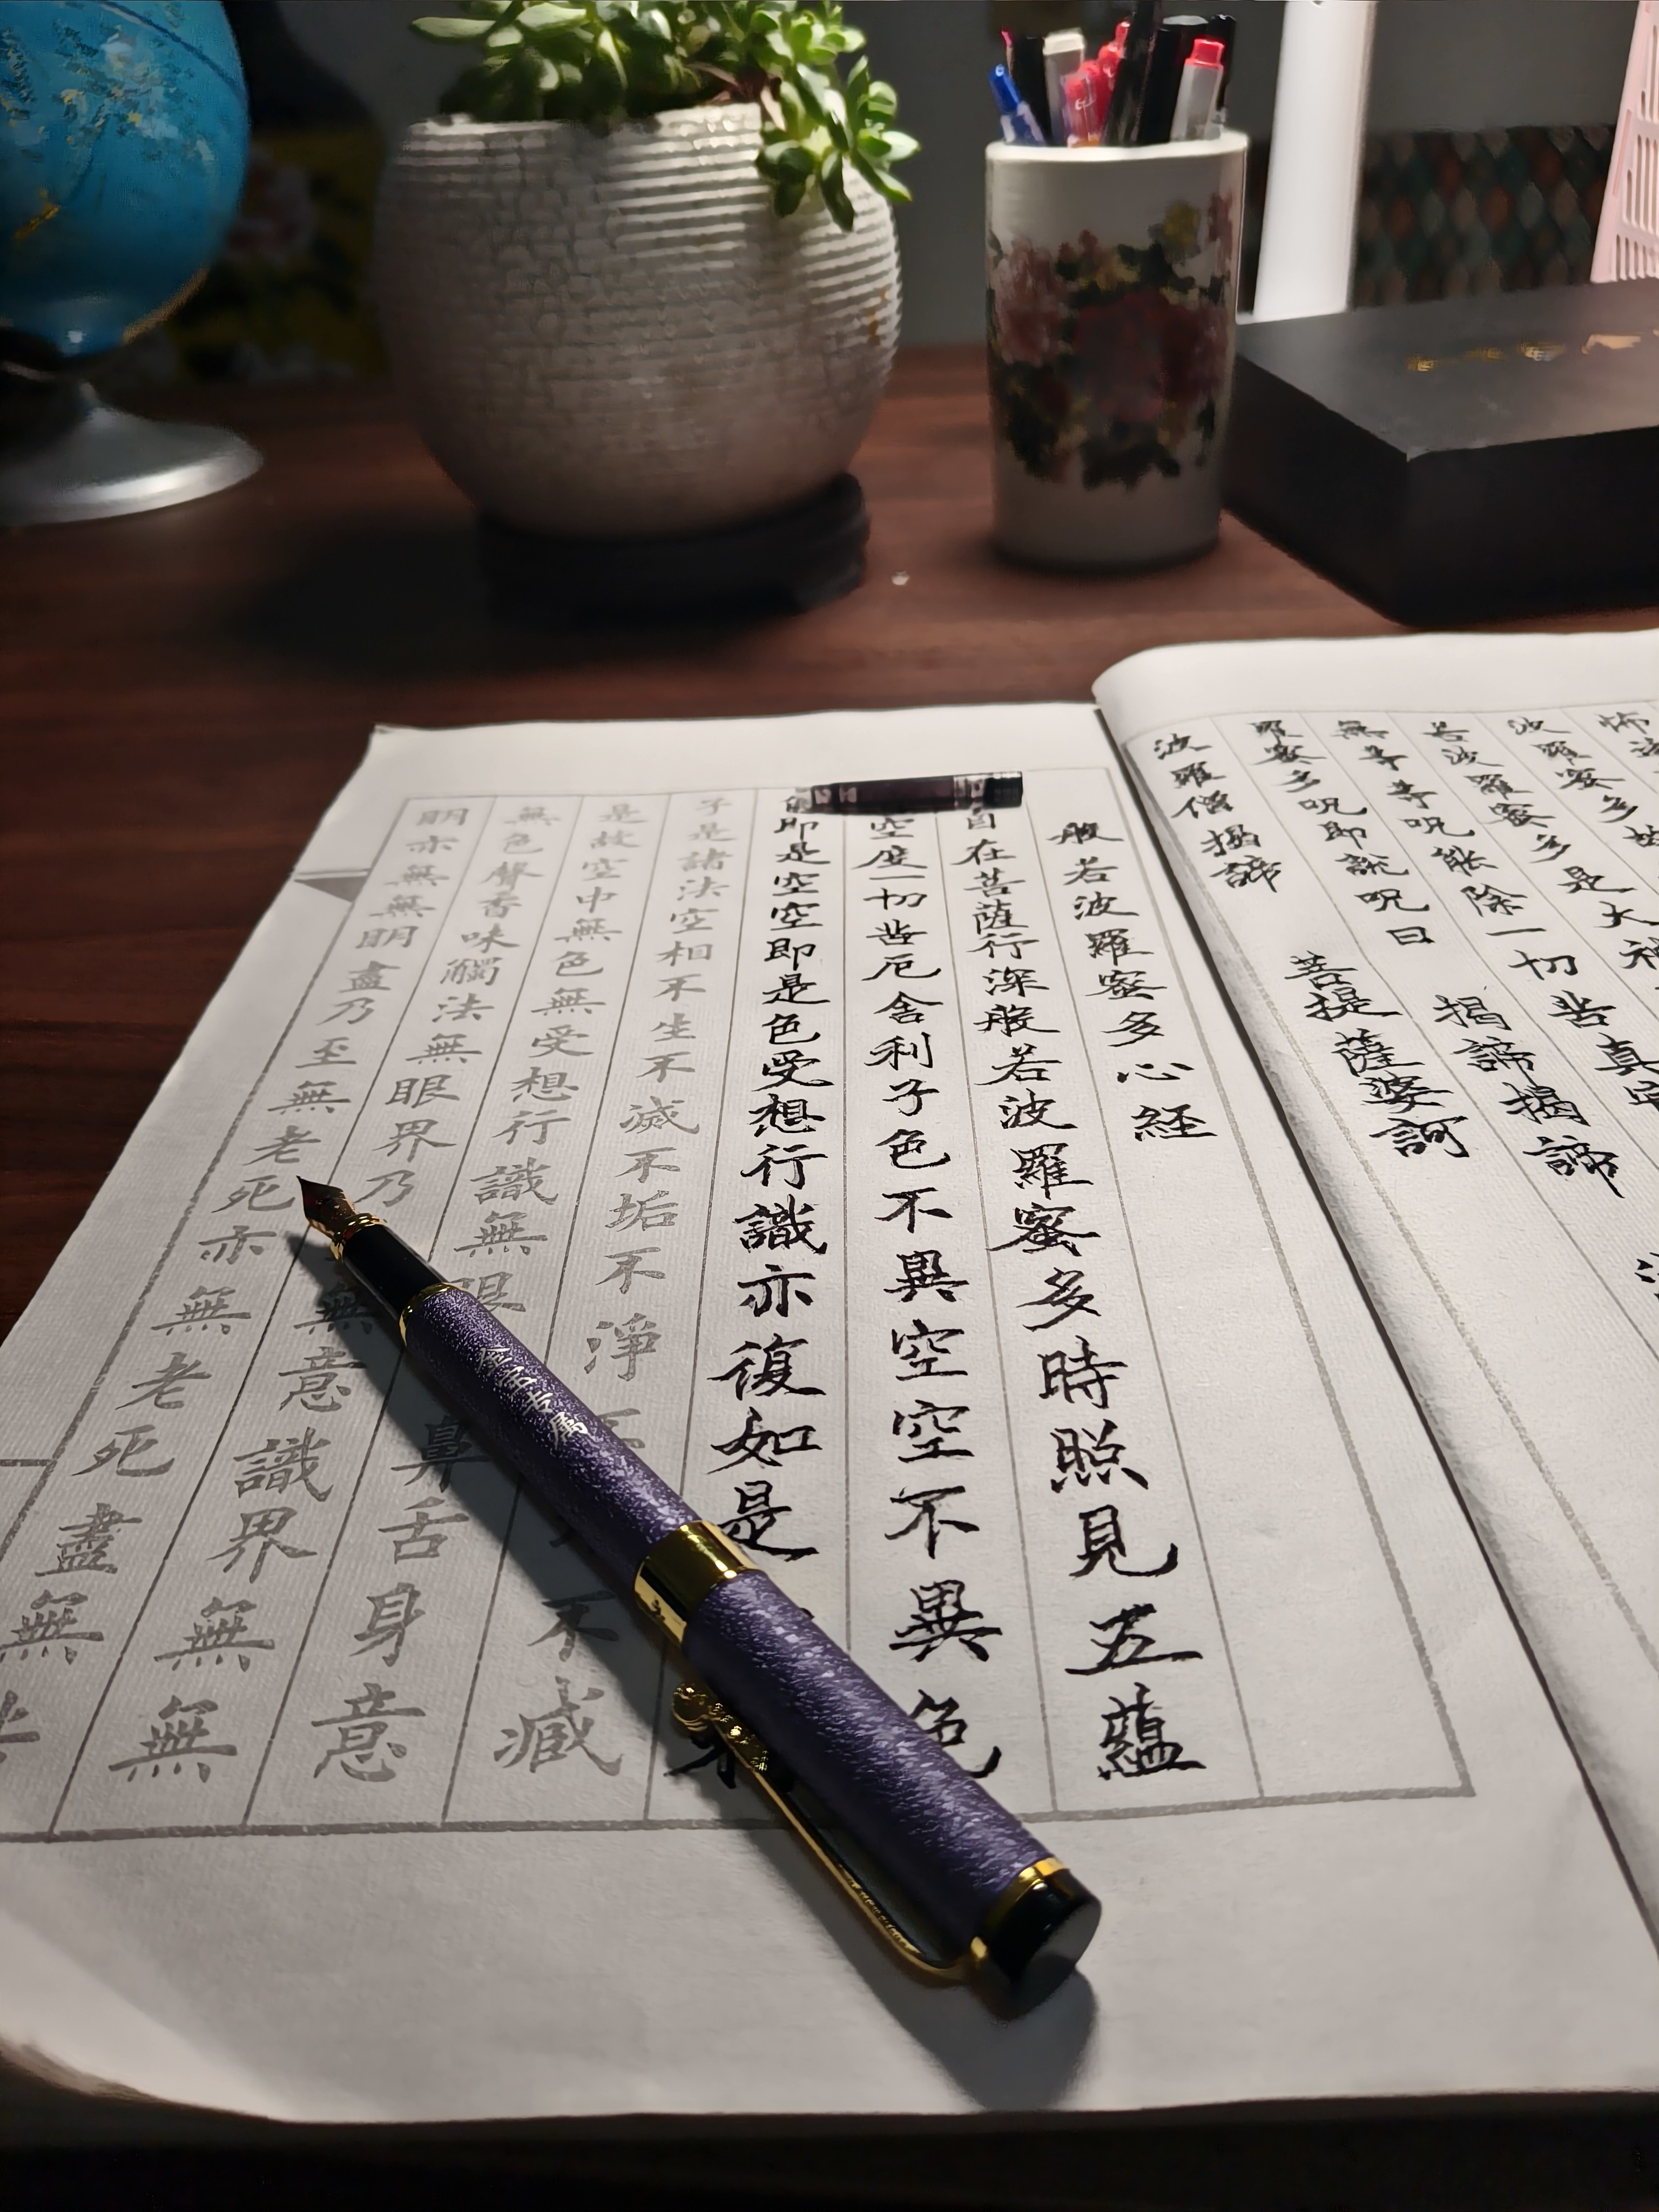 波羅蜜多故
若波羅蜜多是大神
無等等呪能除一切苦真實
羅蜜多呪即說呪曰 揭諦揭諦
波羅僧揭諦 菩提薩婆訶
般若波羅蜜多心経
自在菩薩行深般若波羅蜜多時照見五蘊
空度一切苦厄舍利子色不異空空不異色
即是空空即是色受想行識亦復如是
子是諸法空相不生不滅不垢不淨不減
是故空中無色無受想行識無眼鼻舌身意
無色聲香味觸法無眼界乃無意識界無無
明亦無無明盡乃至無老死亦無老死盡無